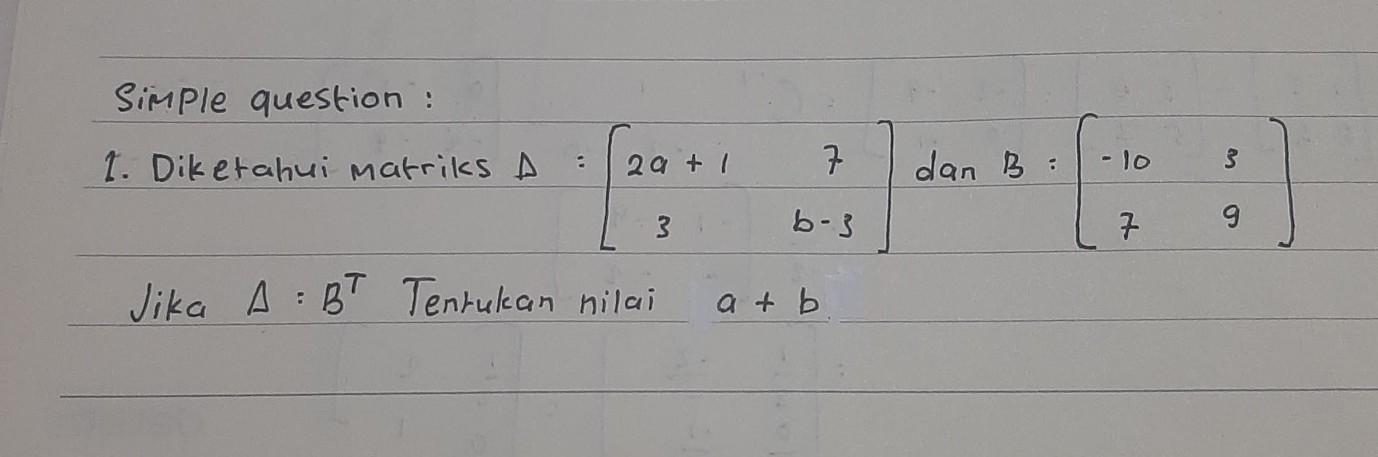 Simple question :
1. Diketahui matriks A : [2a + 1 7 dan B : [-10 3
3 b-3] 7 9]
Jika A : Bᵀ Tentukan nilai a + b